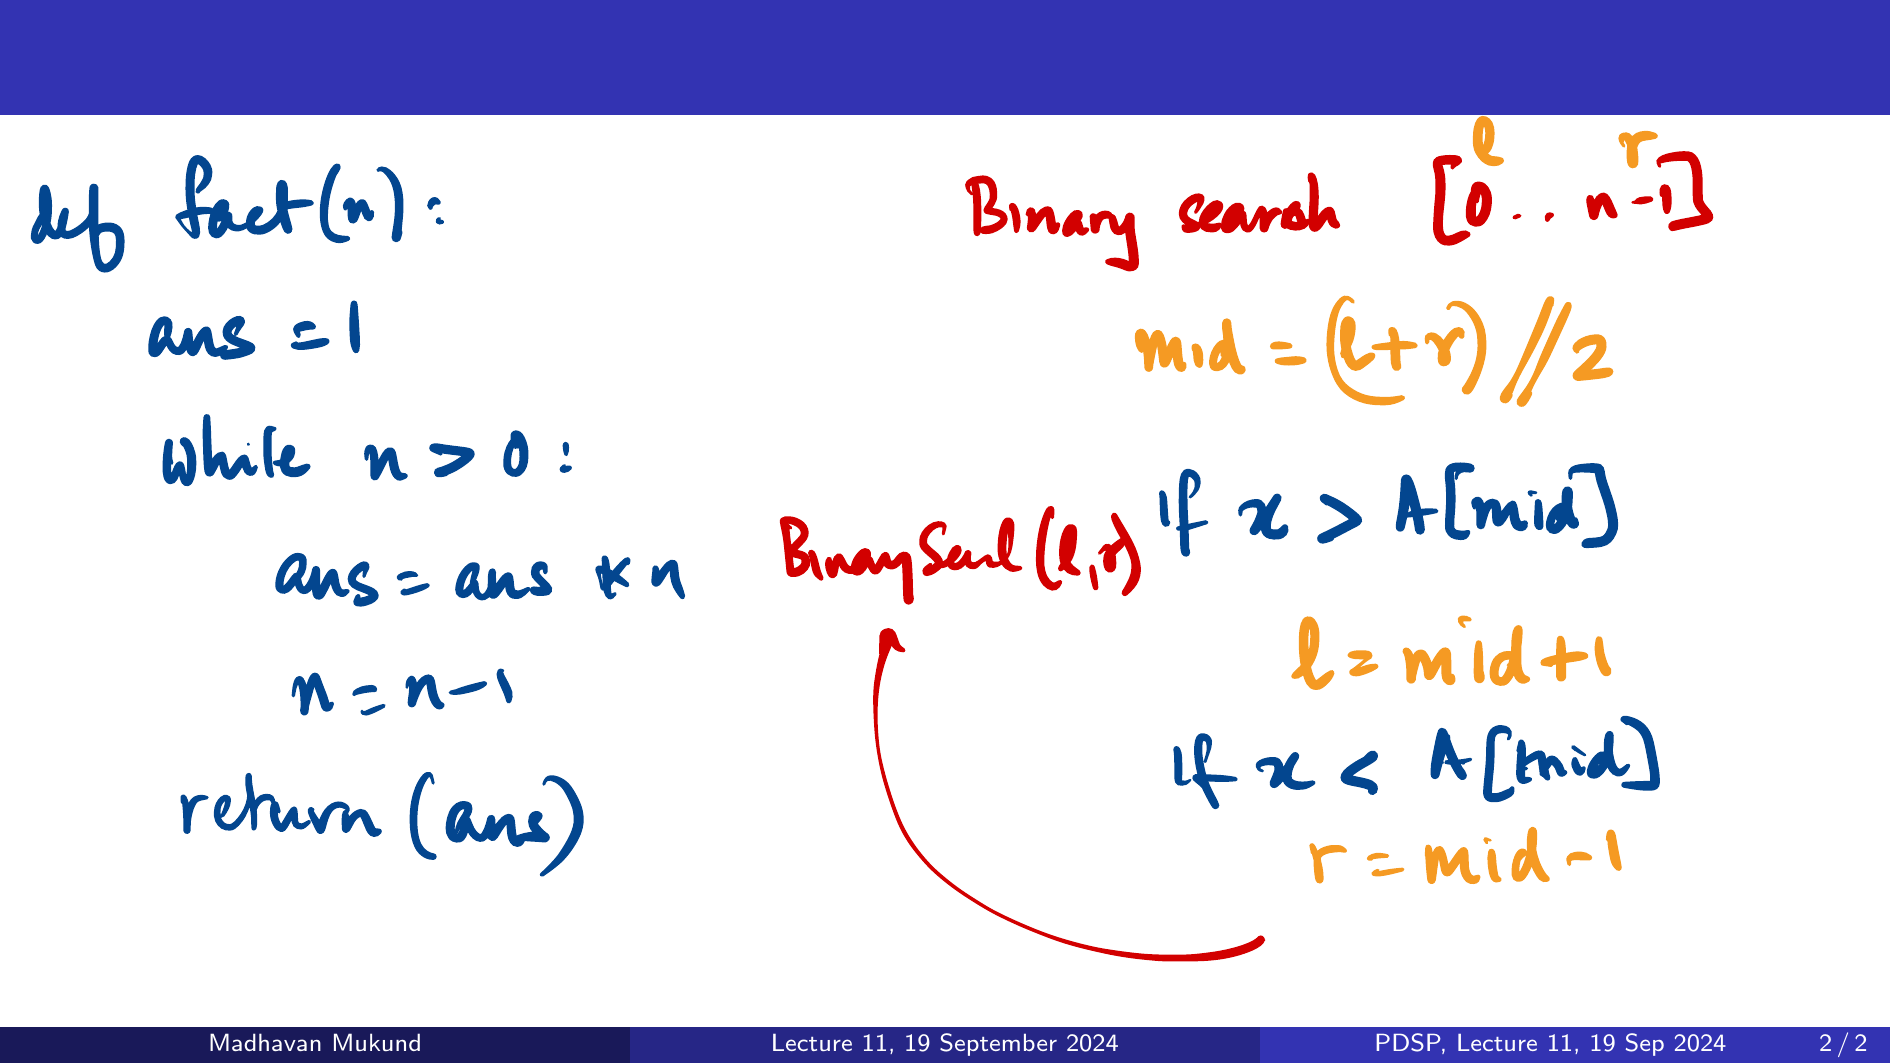 def fact(n):
ans = 1
while n > 0 :
ans = ans * n
n = n-1
return (ans)
Binary search [0 .. n-1]
l r
mid = (l+r) // 2
If x > A[mid]
l = mid+1
If x < A[mid]
r = mid-1
(l,r)
Madhavan Mukund
Lecture 11, 19 September 2024
PDSP, Lecture 11, 19 Sep 2024
2 / 2